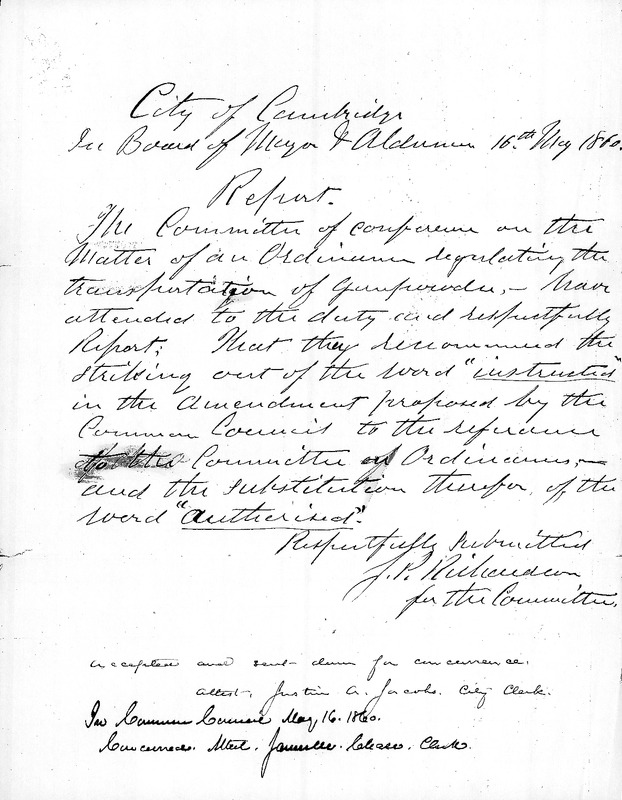 City of Cambridge
In Board of Mayor & Aldermen 16th May 1860.
Report.
The Committee of conference on the
Matter of an Ordinance regulating the
transportation of Gunpowder,- have
attended to the duty and respectfully
Report; That they recommend the
striking out of the word "instructed"
in the Amendment proposed by the
Common Council to the reference
to the Committee on Ordinances,-
and the substitution therefor, of the
word "authorised".
Respectfully submitted
J. P. Richardson
for the Committee.
Accepted and sent down for concurrence.
Attest, Justin A. Jacobs. City Clerk.
In Common Council May 16. 1860.
Concurred. Attest. Chase. Clerk.